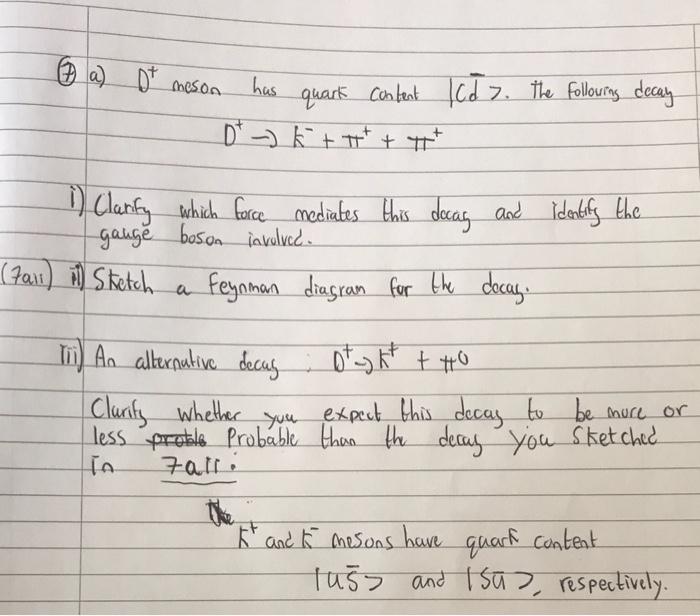 ⑦ a) D⁺ meson has quark content |cd̄>. The following decay
D⁺ → k⁻ + π⁺ + π⁺
i) Clarify which force mediates this decay and identify the
gauge boson involved.
(7aii) ii) Sketch a Feynman diagram for the decay.
iii) An alternative decay : D⁺ → k⁺ + π⁰
Clarify whether you expect this decay to be more or
less Probable than the decay you sketched
in 7aii.
k⁺ and k⁻ mesons have quark content
|us̄> and |sū>, respectively.